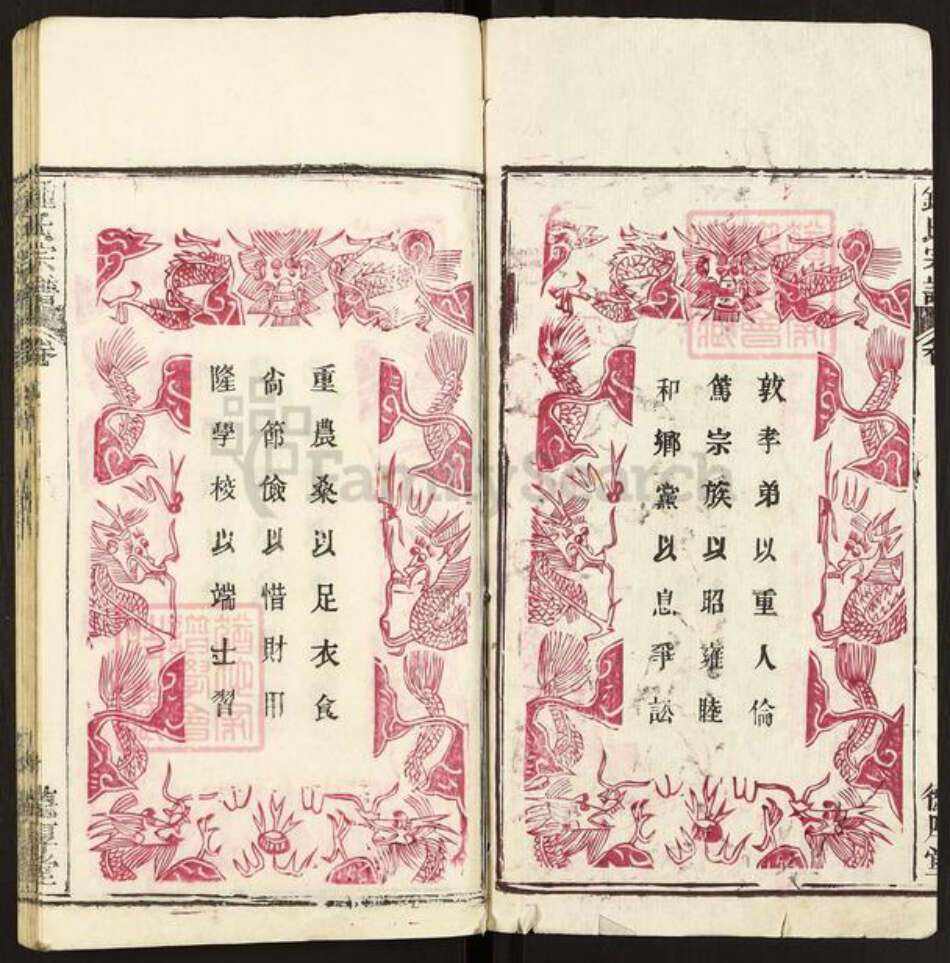 敦孝弟以重人倫
篤宗族以昭雍睦
和鄉黨以息爭訟
重農桑以足衣食
尙節儉以惜財用
隆學校以端士習
鍾氏宗譜
卷
FamilySearch